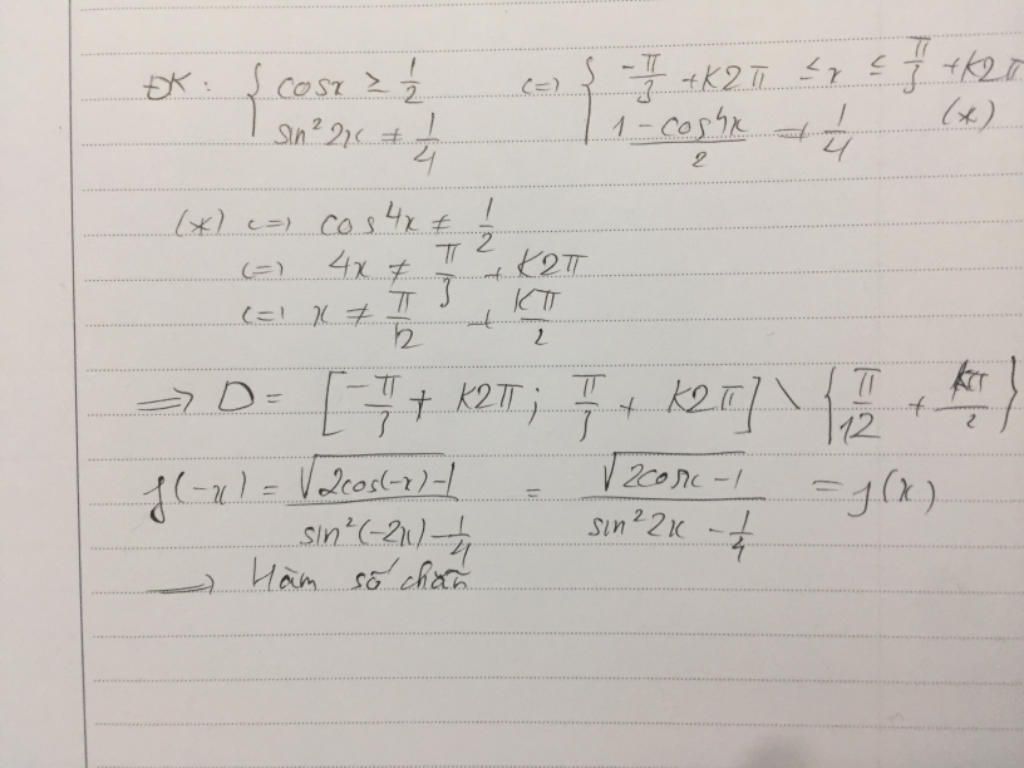 ĐK: { cosx ≥ 1/2 <=> { -π/3 + K2π ≤ x ≤ π/3 + K2π
sin² 2x ≠ 1/4 (1 - cos4x)/2 ≠ 1/4 (*)
(*) <=> cos4x ≠ 1/2
<=> 4x ≠ π/3 + K2π
<=> x ≠ π/12 + Kπ/2
=> D = [-π/3 + K2π; π/3 + K2π] \ {π/12 + Kπ/2}
f(-x) = √(2cos(-x)-1) / (sin²(-2x) - 1/4) = √(2cosx - 1) / (sin² 2x - 1/4) = f(x)
=> Hàm số chẵn